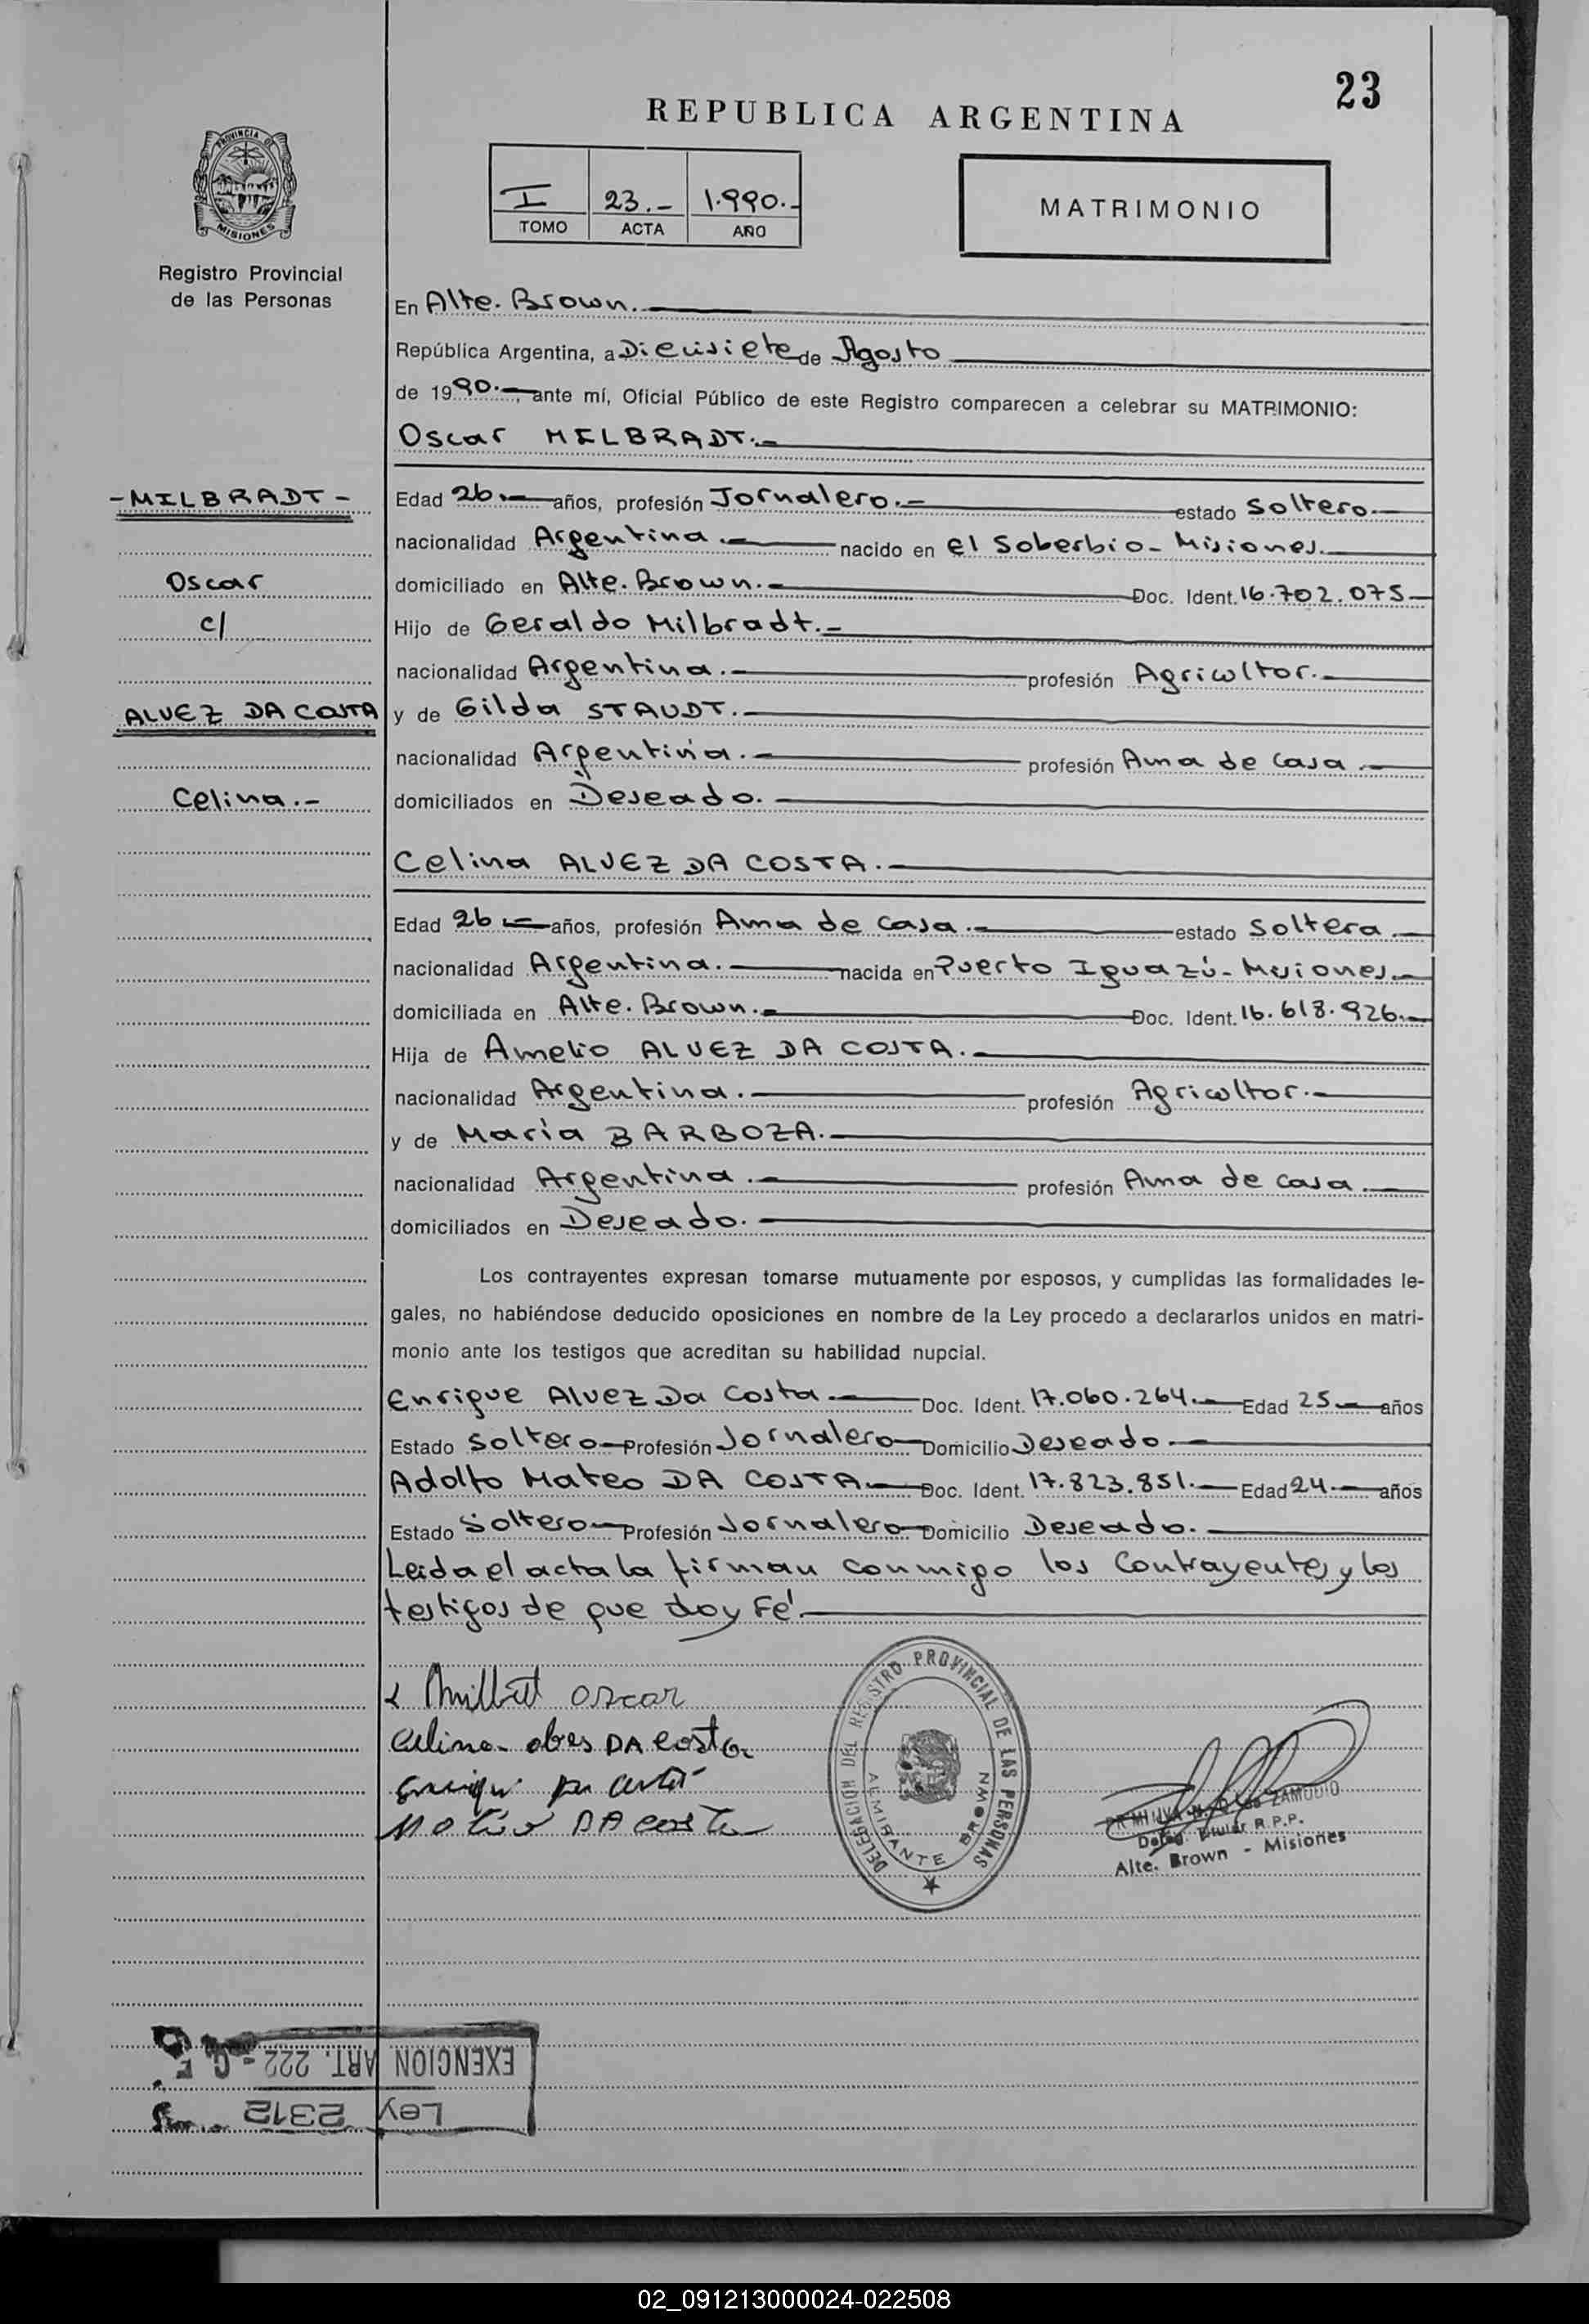 23
REPUBLICA ARGENTINA
PROVINCIA DE
MISIONES
Registro Provincial
de las Personas
I 23.- 1.990.-
TOMO ACTA AÑO
MATRIMONIO
En Alte. Brown.
República Argentina, a Diecisiete de Agosto
de 1990.-, ante mí, Oficial Público de este Registro comparecen a celebrar su MATRIMONIO:
Oscar MILBRADT.-
-MILBRADT-
Oscar
c/
ALVEZ DA COSTA
Celina.-
Edad 26.- años, profesión Jornalero.- estado Soltero.-
nacionalidad Argentina.- nacido en El Soberbio- Misiones.
domiciliado en Alte. Brown.- Doc. Ident. 16.702.075-
Hijo de Geraldo Milbradt.-
nacionalidad Argentina.- profesión Agricultor.-
y de Gilda STAUDT.-
nacionalidad Argentina.- profesión Ama de Casa.-
domiciliados en Deseado.-
Celina ALVEZ DA COSTA.-
Edad 26.- años, profesión Ama de Casa.- estado Soltera.-
nacionalidad Argentina.- nacida en Puerto Iguazú- Misiones.-
domiciliada en Alte. Brown.- Doc. Ident. 16.618.926.-
Hija de Amelio ALVEZ DA COSTA.-
nacionalidad Argentina.- profesión Agricultor.-
y de María BARBOZA.-
nacionalidad Argentina.- profesión Ama de casa.-
domiciliados en Deseado.-
Los contrayentes expresan tomarse mutuamente por esposos, y cumplidas las formalidades le-
gales, no habiéndose deducido oposiciones en nombre de la Ley procedo a declararlos unidos en matri-
monio ante los testigos que acreditan su habilidad nupcial.
Enrique Alvez Da Costa.- Doc. Ident. 17.060.264.- Edad 25.- años
Estado Soltero- Profesión Jornalero- Domicilio Deseado.-
Adolfo Mateo DA COSTA.- Doc. Ident. 17.823.851.- Edad 24.- años
Estado Soltero- Profesión Jornalero- Domicilio Deseado.-
Leida el acta la firman conmigo los Contrayentes y los
testigos de que doy Fé.
oscar
Celina DA Costa
DA costa
DELEGACION DEL REGISTRO PROVINCIAL DE LAS PERSONAS
ALMIRANTE BROWN
ZAMUDIO
Deleg. Titular R.P.P.
Alte. Brown - Misiones
EXENCION ART. 222 - C. F.
Ley 2312
02_091213000024-022508